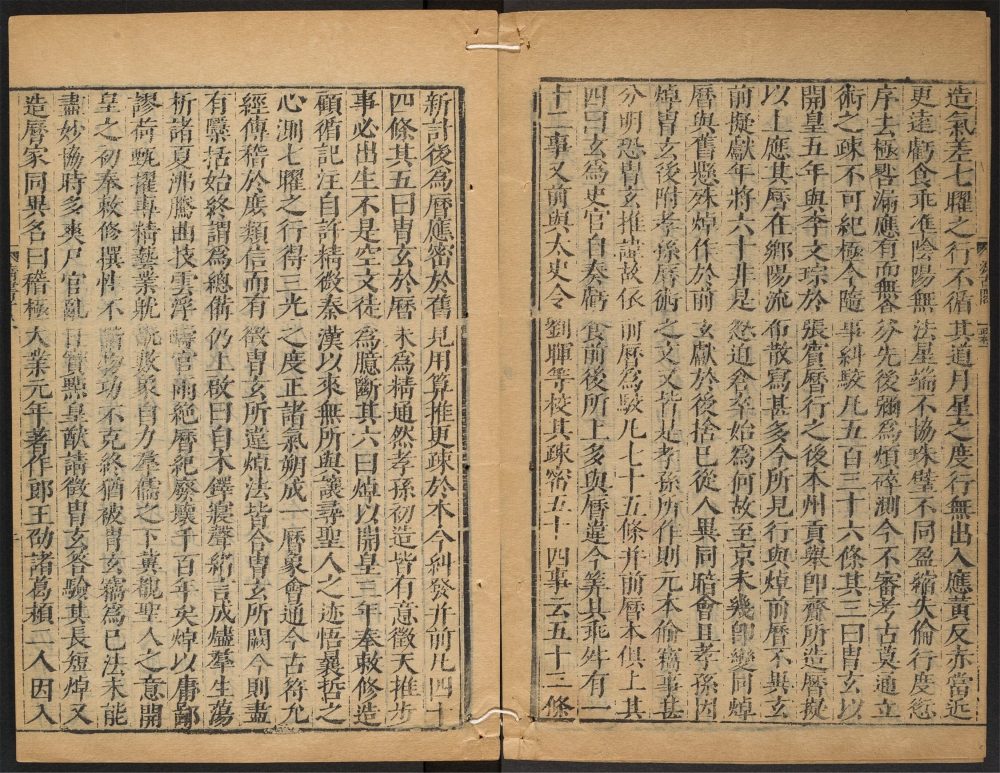 造氣差七曜之行不循其道月星之度行無出入應黃反赤當近
更遠虧食乖准陰陽無法星端不協珠璧不同盈縮失倫行度愆
序去極晷漏應有而無食分先後彌為煩碎測今不審考古莫通立
術之疎不可紀極今隨事糾駮凡五百三十六條其三曰胄玄以
開皇五年與李文琮於張賓曆行之後本州貢舉即齎所造曆擬
以上應其曆在鄉陽流布散寫甚多今所見行與焯前曆不異玄
前擬獻年將六十非是忽迫倉卒始為何故至京未幾即變同焯
曆與舊懸殊焯作於前玄獻於後捨已從人異同暗會且孝孫因
焯胄玄後附孝孫曆術之文又皆是孝孫所作則元本偷竊事甚
分明恐胄玄推諱故依前曆為駮凡七十五條并前曆本俱上其
四曰玄為史官自奏虧食前後所上多與曆違今筭其乖舛有一
十二事又前與太史令劉暉等校其疎密五十四事云五十三條
新計後為曆應密於舊見用算推更疎於本今糾發并前凡四十
四條其五曰胄玄於曆未為精通然孝孫初造皆有意徵天推步
事必出生不是空文徒為臆斷其六曰焯以開皇三年奉敕修造
顧循記注自許精微秦漢以來無所與讓尋聖人之迹悟曩哲之
心測七曜之行得三光之度正諸氣朔成一曆象會通今古符允
經傳稽於庶類信而有徵胄玄所違焯法皆合胄玄所闕今則盡
有檃括始終謂為總備仍上啟曰自木鐸寢聲緒言成燼羣生蕩
析諸夏沸騰曲技雲浮疇官雨絕曆紀廢壞千百年矣焯以庸鄙
謬荷甄擢專精藝業耽翫數象自力羣儒之下冀覩聖人之意開
皇之初奉敕修撰性不諧物功不克終猶被胄玄竊為已法未能
盡妙協時多爽尸官亂日實點皇猷請徵胄玄荅驗其長短焯又
造曆家同異名曰稽極大業元年著作郎王劭諸葛頴二人因入